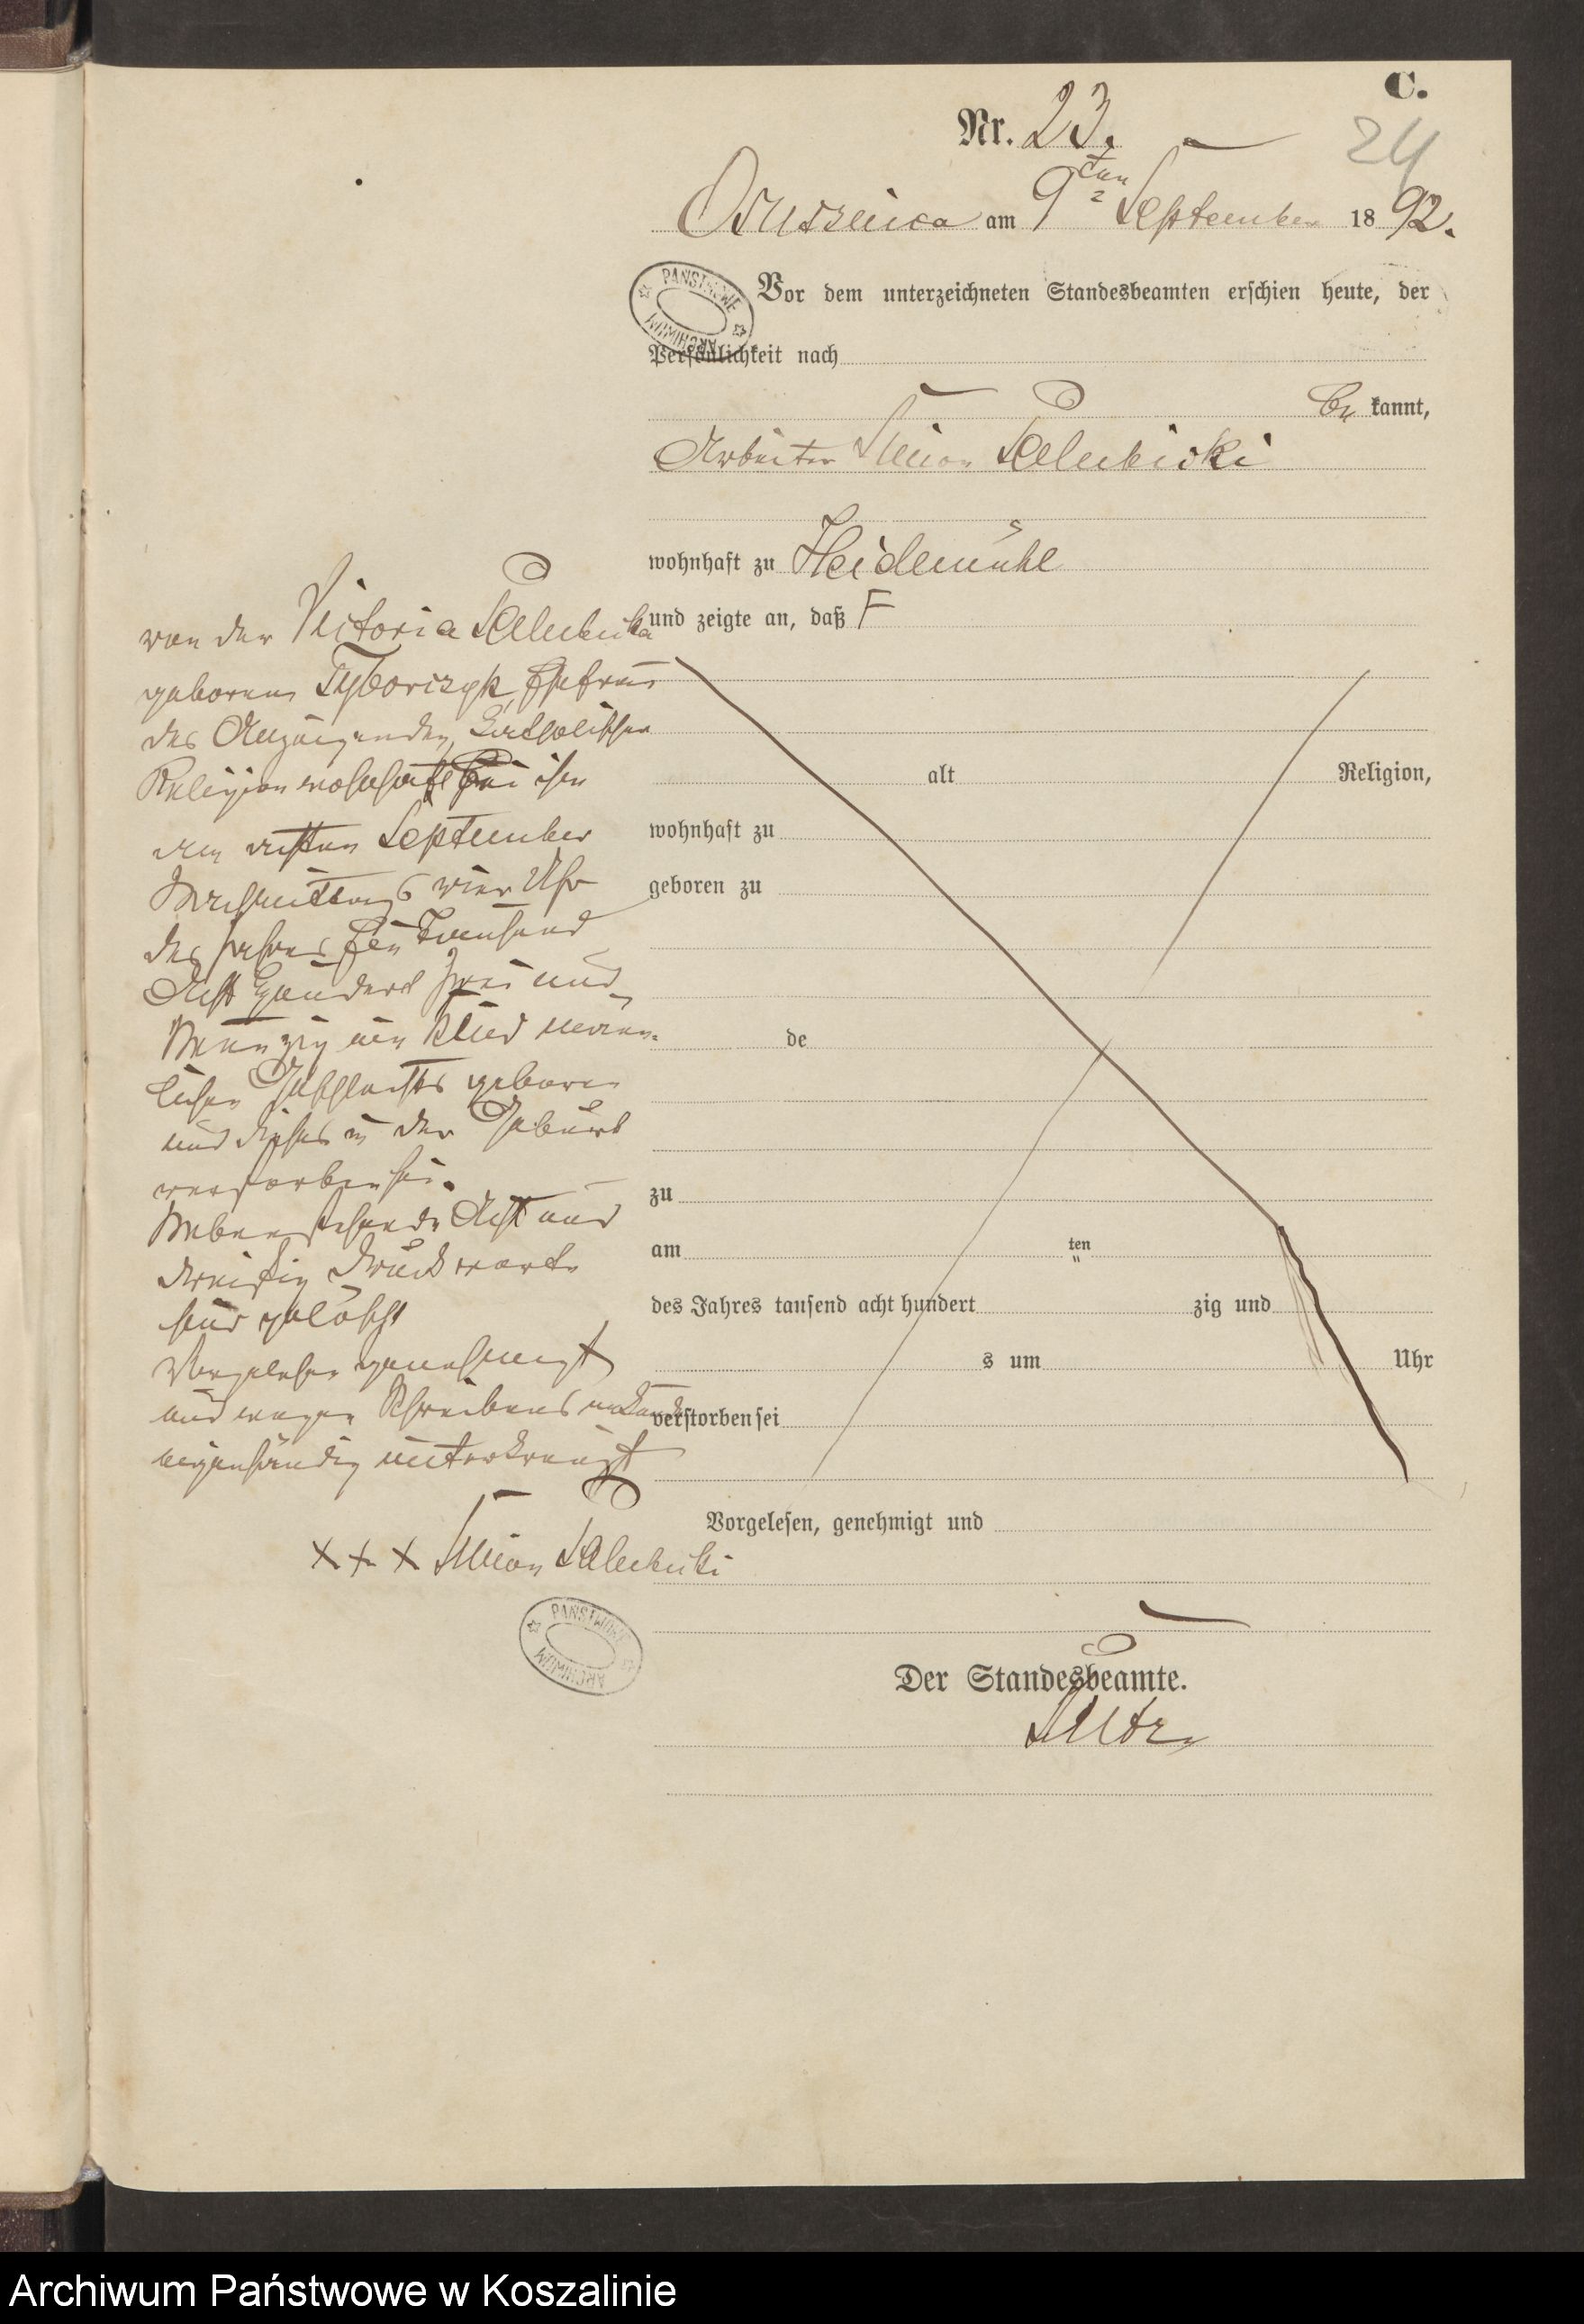 C.
Nr. 23.
24
Ossusznica am 9ten September 1892.
PAŃSTWOWE ARCHIWUM
Vor dem unterzeichneten Standesbeamten erschien heute, der
Persönlichkeit nach
be kannt,
Arbeiter Simon
wohnhaft zu Heidemühl
und zeigte an, daß
von der Victoria
geborenen Tyborczyk Ehefrau
des Anzeigenden, katholischer
Religion wohnhaft bei ihm
am achten September
Nachmittags vier Uhr
des Jahres Ein Tausend
Acht Hundert Zwei und
Neunzig ein Kind männ-
lichen Geschlechts geboren
und dieses in der Geburt
verstorben sei.
Nebenstehende Acht und
dreißig Druckworte
sind gelöscht
Vorgelesen genehmigt
und wegen Schreibens unkunde
eigenhändig unterkreuzt
+ + + Simon
alt Religion,
wohnhaft zu
geboren zu
de
zu
am ten
des Jahres tausend acht hundert zig und
s um Uhr
verstorben sei
Vorgelesen, genehmigt und
PAŃSTWOWE ARCHIWUM
Der Standesbeamte.
Archiwum Państwowe w Koszalinie